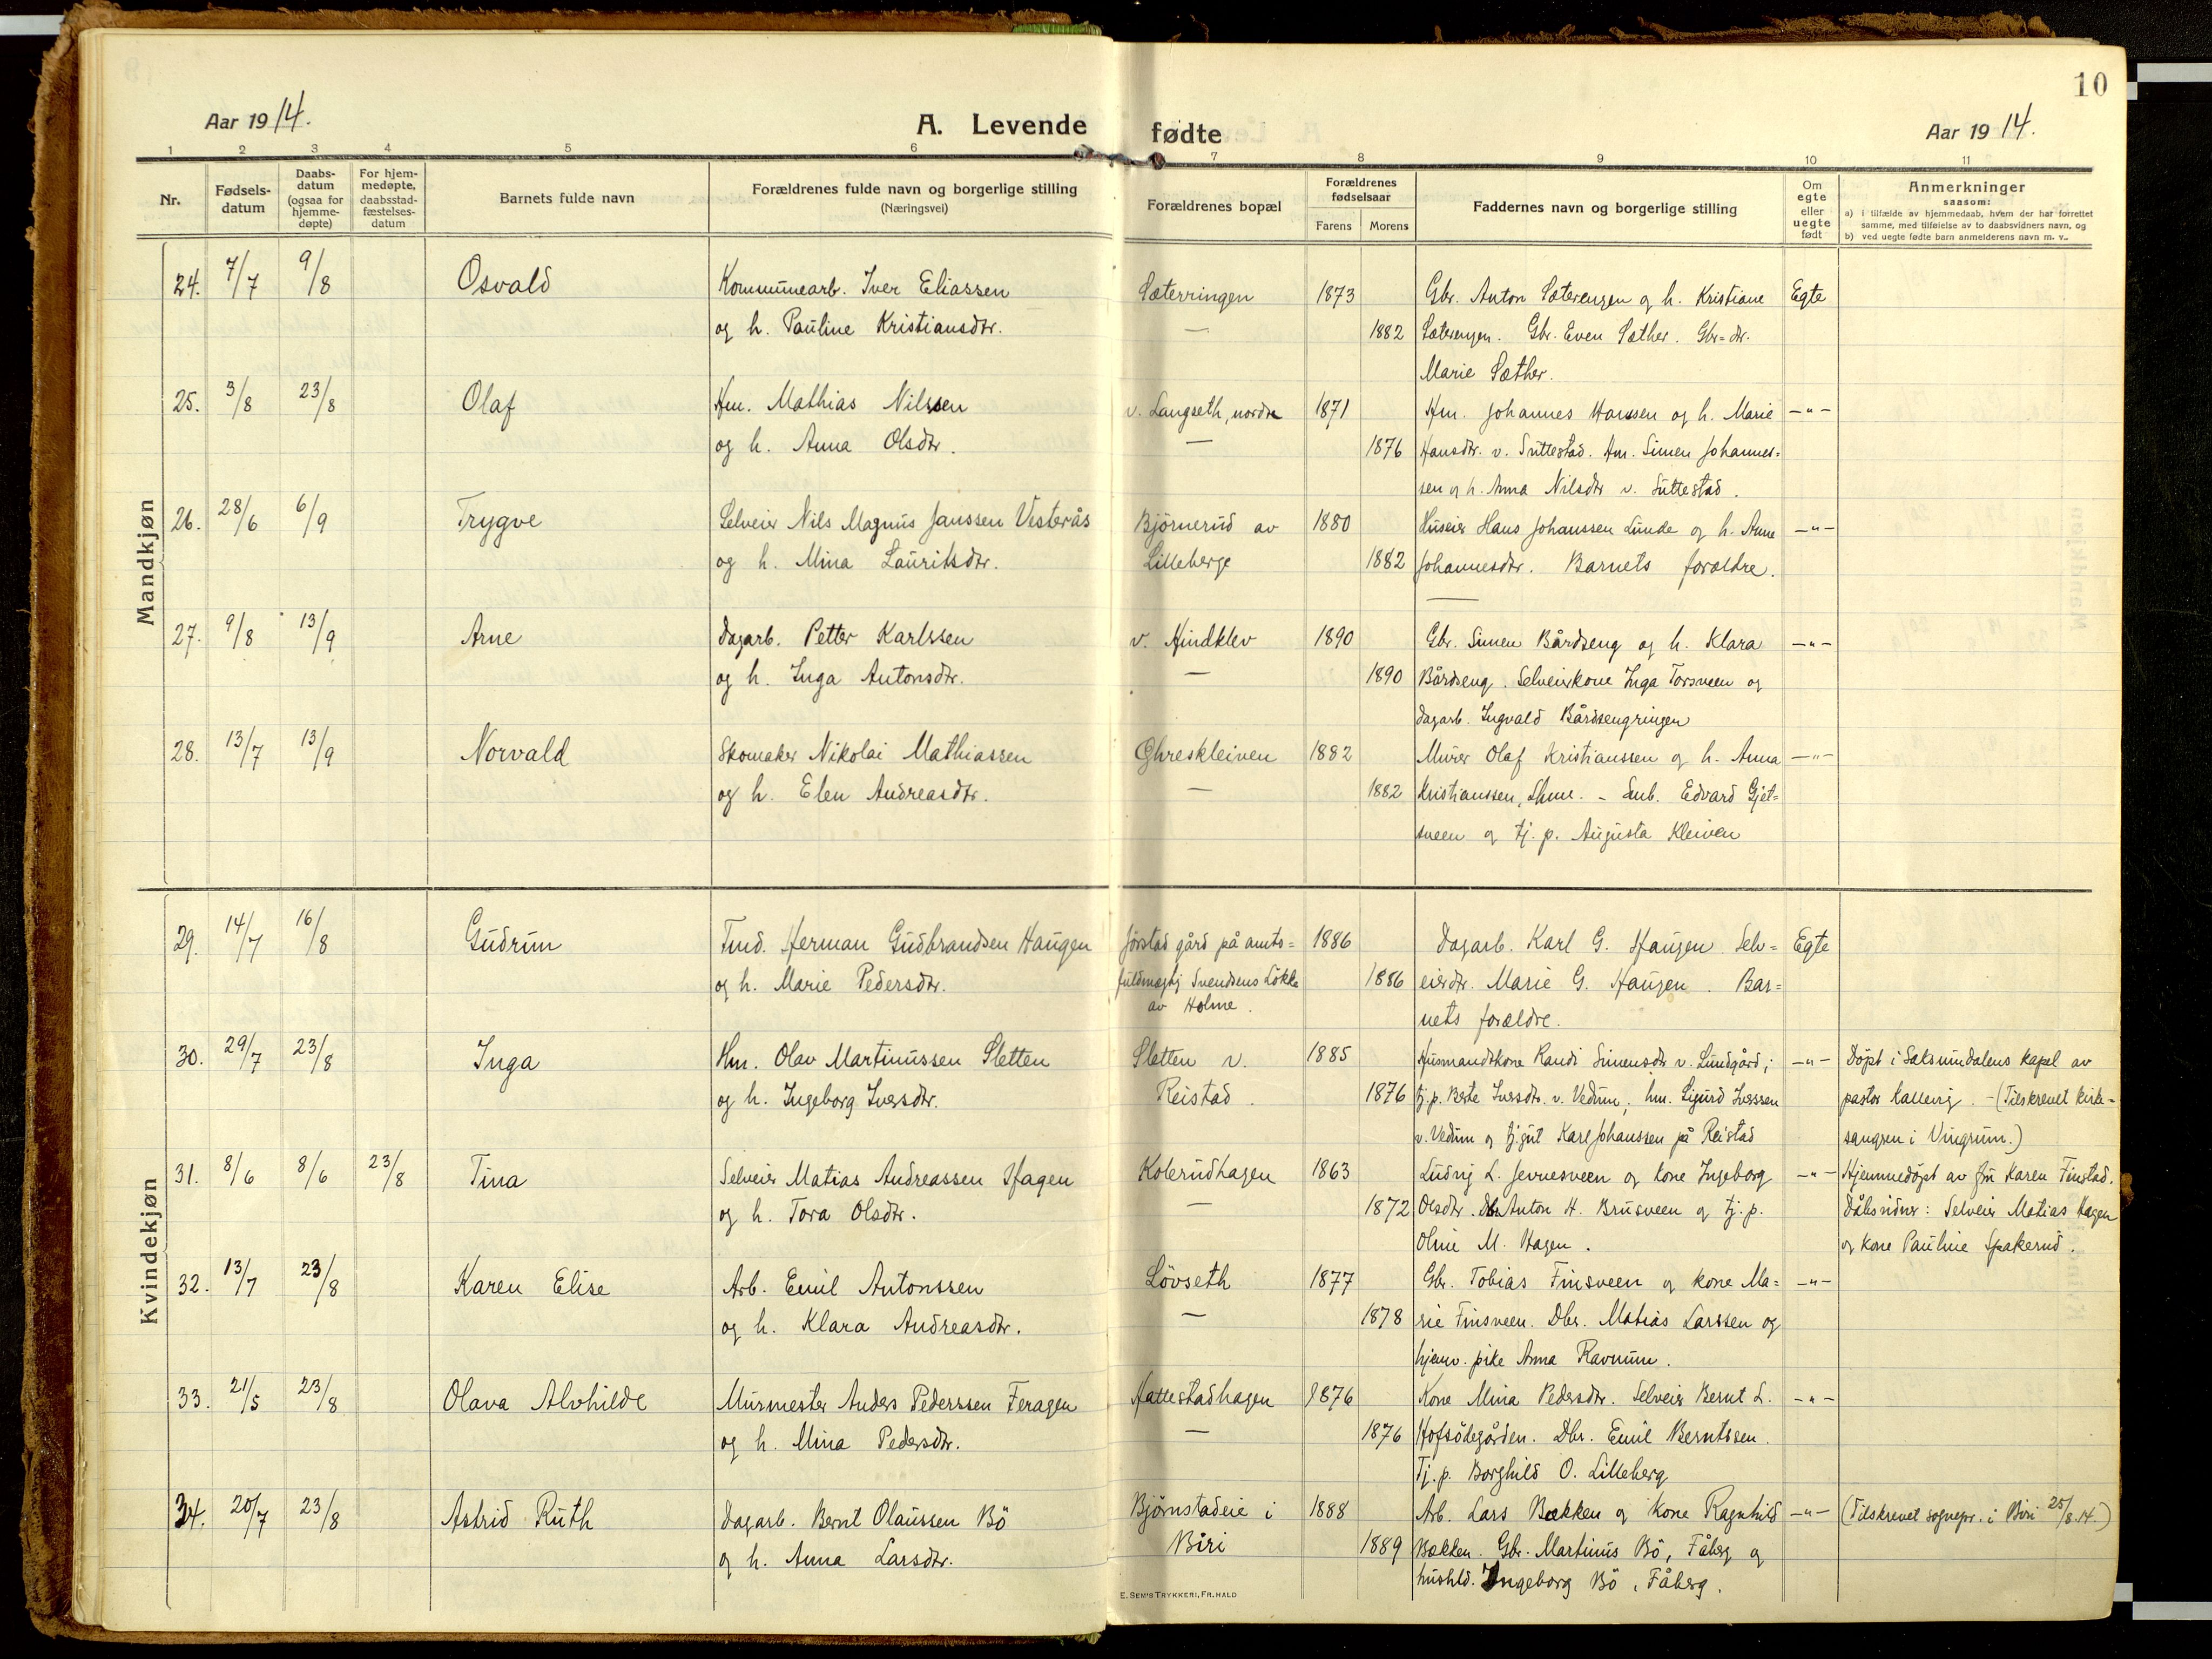 10
Aar 1914.
A. Levende fødte
Aar 1914.
1 2 3 4 5 6 7 8 9 10 11
Nr.
Fødsels-
datum
Daabs-
datum
(ogsaa for
hjemme-
døpte)
For hjem-
medøpte,
daabsstad-
fæstelses-
datum
Barnets fulde navn
Forældrenes fulde navn og borgerlige stilling
(Næringsvei)
Forældrenes bopæl
Forældrenes
fødselsaar
Farens Morens
Faddernes navn og borgerlige stilling
Om
egte
eller
uegte
født
Anmerkninger
saasom:
a) i tilfælde av hjemmedaab, hvem der har forrettet
samme, med tilføielse av to daabsvidners navn, og
b) ved uegte fødte barn anmelderens navn m. v..
Mandkjøn
24. 7/7 9/8 Osvald Kommunearb. Iver Eliassen Sæterringen 1873 Gbr. Anton Sæterengen og h. Kristiane Egte
og h. Pauline Kristiansdtr. — 1882 Sæterengen. Gbr. Even Sæther. Gbr=dtr.
Marie Sæther.
25. 3/8 23/8 Olaf Hm. Mathias Nilssen v. Langseth, nordre 1871 Hm. Johannes Hanssen og h. Marie —"—
og h. Anna Olsdtr. — 1876 Hansdtr. v. Suttestad. Hm. Simen Johannes=
sen og h. Anna Nilsdtr v. Suttestad.
26. 28/6 6/9 Trygve Selveier Nils Magnus Janssen Vesterås Bjørnerud av 1880 Huseier Hans Johanssen Lunde og h. Anne —"—
og h. Mina Lauritsdtr. Lilleberge 1882 Johannesdtr. Barnets forældre.
—
27. 9/8 13/9 Arne Dagarb. Petter Karlssen v. Hindklev 1890 Gbr. Simen Bårdseng og h. Klara —"—
og h. Inga Antonsdtr. — 1890 Bårdseng. Selveierkone Inga Torsveen og
dagarb. Ingvald Bårdsengringen
28. 13/7 13/9 Norvald Skomaker Nikolai Mathiassen Ghreskleiven 1882 Murer Olaf Kristianssen og h. Anna —"—
og h. Elen Andreasdtr. — 1882 Kristianssen, Lhmr. - Smb. Edvard Gjet=
sveen og tj. p. Augusta Kleiven
Kvindekjøn
29. 14/7 16/8 Gudrun Tmd. Herman Gudbrandsen Haugen Jørstad gård på amts= 1886 Dagarb. Karl G. Haugen. Selv= Egte
og h. Marie Pedersdtr. fuldmægtig Svendsens Løkke 1886 eierdtr. Marie G. Haugen. Bar=
av Holme. nets forældre.
30. 29/7 23/8 Inga Hm. Olav Martinussen Sletten Sletten v. 1885 Husmandskone Randi Simensdtr v. Lundgård; —"— Døpt i Saksumdalens kapel av
og h. Ingeborg Iversdtr. Reistad. 1876 tj. p. Berte Iversdtr. v. Vedum; hm. Sigurd Iverssen pastor Kallevig. - (Tilskrevet kirke=
v. Vedum og tj.gut Karl Johanssen på Reistad sangren i Vingrum.)
31. 8/6 8/6 23/8 Tina Selveier Matias Andreassen Hagen Kolerudhagen 1863 Ludvig L. Jevnesveen og kone Ingeborg —"— Hjemmedøpt av fru Karen Finstad.
og h. Tora Olsdtr. — 1872 Olsdtr. Dbr Anton H. Brusveen og tj. p. Dåbsvidner: Selveier Matias Hagen
Oline M. Hagen. og kone Pauline Spakerud.
32. 13/7 23/8 Karen Elise Arb. Emil Antonssen Lövseth 1877 Gbr. Tobias Finsveen og kone Ma= —"—
og h. Klara Andreasdtr. — 1878 rie Finsveen. Dbr. Matias Larssen og
hjemv. pike Anna Ravnum.
33. 21/5 23/8 Olava Alvhilde Murmester Anders Pederssen Feragen Hattestadhagen 1876 Kone Mina Pedersdtr. Selveier Bernt L. —"—
og h. Mina Pedersdtr. — 1876 Hofsödegården. Dbr. Emil Berntssen.
Tj. p. Borghild O. Lilleberg
34. 20/7 23/8 Astrid Ruth Dagarb. Bernt Olaussen Bö Bjørnstadeie i 1888 Arb. Lars Bækken og kone Ragnhild —"— (Tilskrevet sognepr. i Biri 25/8.14.)
og h. Anna Larsdtr. Biri 1889 Bækken. Gbr. Martinus Bö, Fåberg og
hushld. Ingeborg Bö, Fåberg.
E. SEM'S TRYKKERI, FR.HALD